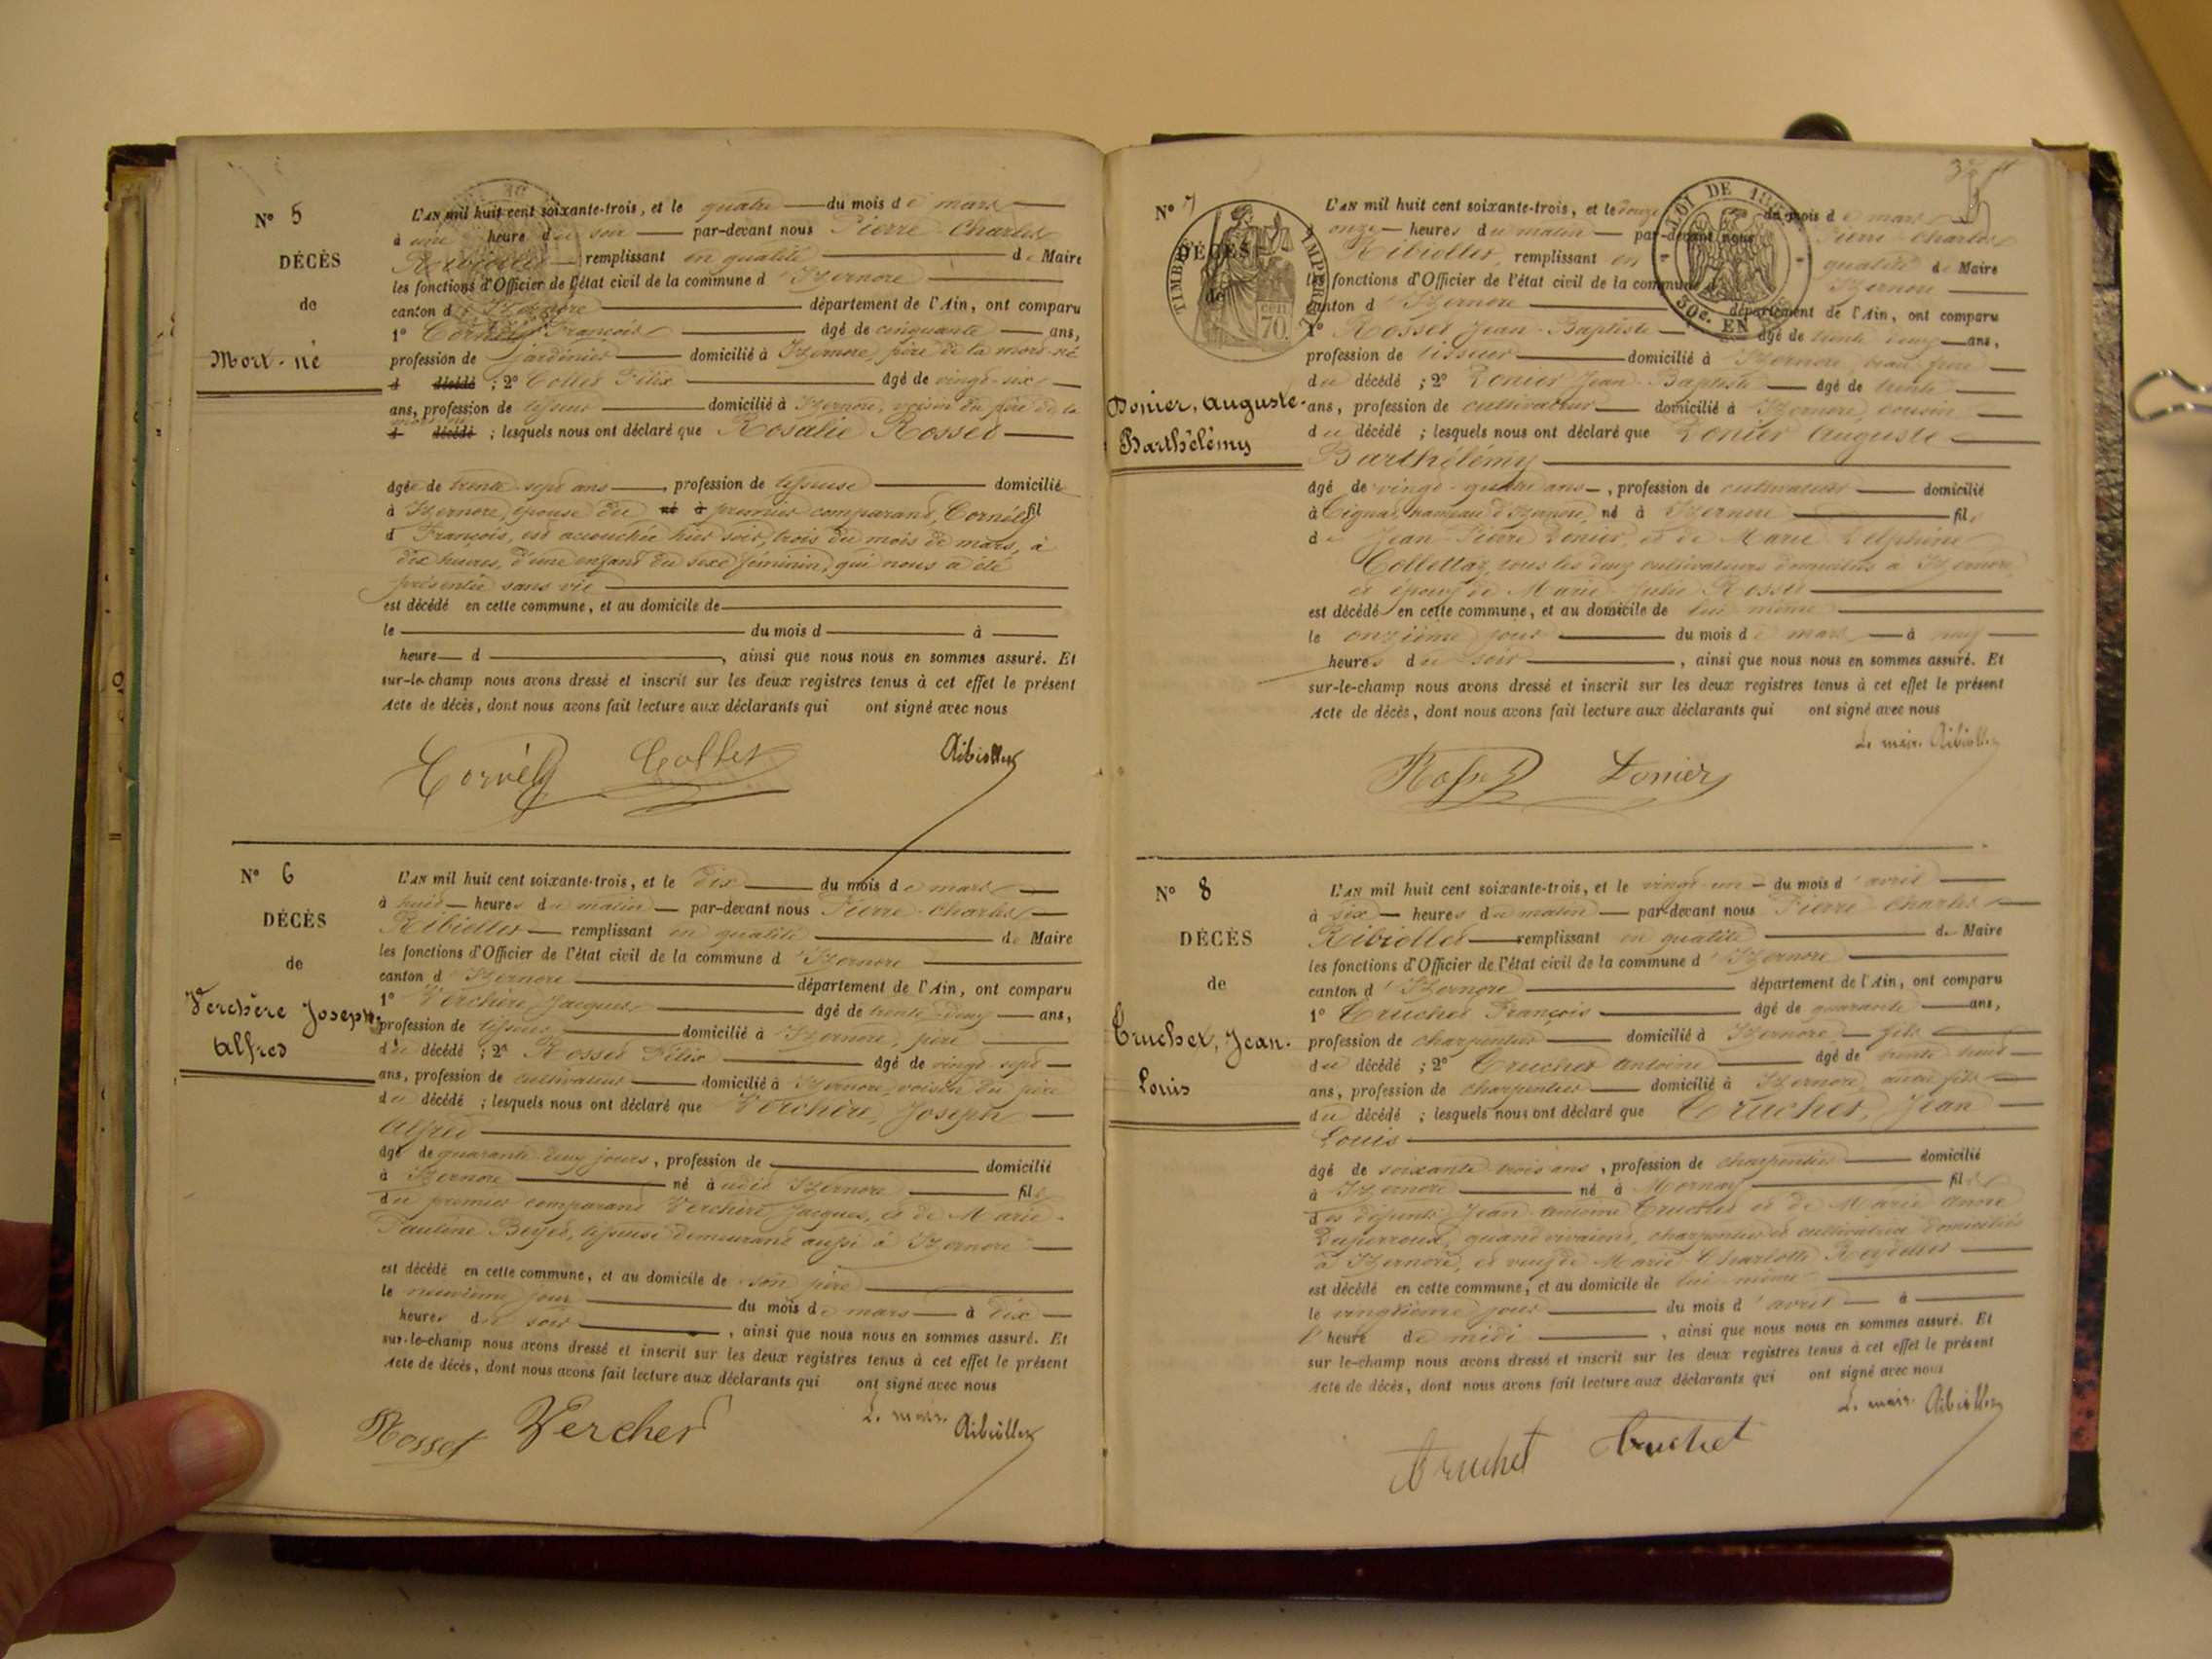 N° 5
DÉCÈS
de
Mort-né
L'AN mil huit cent soixante-trois, et le quatre du mois de mars
à une heure du soir par-devant nous Pierre Charles
Ribiollet remplissant en qualité de Maire
les fonctions d'Officier de l'état civil de la commune d'Izernore
canton d'Izernore département de l'Ain, ont comparu
1° Cornély François âgé de cinquante ans,
profession de jardinier domicilié à Izernore, père de la mort-né
d décédé ; 2° Collet Félix âgé de vingt-six
ans, profession de tisseur domicilié à Izernore, voisin du père de la
mort-né
d décédé ; lesquels nous ont déclaré que Rosalie Rosset
âgée de trente-sept ans, profession de tisseuse domicilié
à Izernore, épouse du né à premier comparant, Cornély fil
d François, est accouchée hier soir, trois du mois de mars, à
dix heures, d'une enfant du sexe féminin, qui nous a été
présentée sans vie
est décédé en cette commune, et au domicile de
le du mois d à
heure d , ainsi que nous nous en sommes assuré. Et
sur-le-champ nous avons dressé et inscrit sur les deux registres tenus à cet effet le présent
Acte de décès, dont nous avons fait lecture aux déclarants qui ont signé avec nous
Cornély Collet Ribiollet
N° 6
DÉCÈS
de
Verchère Joseph
Alfred
L'AN mil huit cent soixante-trois, et le dix du mois de mars
à huit heures du matin par-devant nous Pierre Charles
Ribiollet remplissant en qualité de Maire
les fonctions d'Officier de l'état civil de la commune d'Izernore
canton d'Izernore département de l'Ain, ont comparu
1° Verchère Jacques âgé de trente-deux ans,
profession de tisseur domicilié à Izernore, père
du décédé ; 2° Rosset Félix âgé de vingt-sept
ans, profession de cultivateur domicilié à Izernore, voisin du père
du décédé ; lesquels nous ont déclaré que Verchère, Joseph
Alfred
âgé de quarante-deux jours, profession de domicilié
à Izernore né à udit Izernore fils
du premier comparant Verchère Jacques, et de Marie-
Pauline tisseuse demeurant aussi à Izernore
est décédé en cette commune, et au domicile de son père
le neuvième jour du mois de mars à dix
heures du soir , ainsi que nous nous en sommes assuré. Et
sur-le-champ nous avons dressé et inscrit sur les deux registres tenus à cet effet le présent
Acte de décès, dont nous avons fait lecture aux déclarants qui ont signé avec nous
Rosset Vercher Le maire Ribiollet
N° 7
DÉCÈS
de
Donier, Auguste-
Barthélémy
TIMBRE IMPÉRIAL
70
LOI DE 1862
50c. EN SUS
L'AN mil huit cent soixante-trois, et le douze du mois de mars
onze heures du matin par-devant nous Pierre Charles
Ribiollet, remplissant en qualité de Maire
les fonctions d'Officier de l'état civil de la commune d'Izernore
canton d'Izernore département de l'Ain, ont comparu
1° Rosset Jean-Baptiste âgé de trente-deux ans,
profession de tisseur domicilié à Izernore, beau-frère
du décédé ; 2° Donier Jean-Baptiste âgé de trente
ans, profession de cultivateur domicilié à Izernore, cousin
du décédé ; lesquels nous ont déclaré que Donier Auguste
Barthélémy
âgé de vingt-quatre ans, profession de cultivateur domicilié
à hameau d'Izernore, né à Izernore fils
de Jean-Pierre Donier, et de Marie Delphine
Collettaz, tous les deux cultivateurs domiciliés à Izernore,
et époux de Marie-Julie Rosset
est décédé en cette commune, et au domicile de lui-même
le onzième jour du mois de mars à neuf
heures du soir , ainsi que nous nous en sommes assuré. Et
sur-le-champ nous avons dressé et inscrit sur les deux registres tenus à cet effet le présent
Acte de décès, dont nous avons fait lecture aux déclarants qui ont signé avec nous
Le maire Ribiollet
Rosset Donier
N° 8
DÉCÈS
de
Truchet, Jean-
Louis
L'AN mil huit cent soixante-trois, et le vingt-un du mois d'avril
à six heures du matin par-devant nous Pierre Charles
Ribiollet remplissant en qualité de Maire
les fonctions d'Officier de l'état civil de la commune d'Izernore
canton d'Izernore département de l'Ain, ont comparu
1° Truchet François âgé de quarante ans,
profession de charpentier domicilié à Izernore, fils
du décédé ; 2° Truchet Antoine âgé de trente-huit
ans, profession de charpentier domicilié à Izernore, autre fils
du décédé ; lesquels nous ont déclaré que Truchet, Jean
Louis
âgé de soixante-trois ans, profession de charpentier domicilié
à Izernore né à Mornay fils
des défunts Jean-Antoine Truchet et de Marie Anne
quand vivaient, charpentier et cultivatrice domiciliés
à Izernore, et veuf de Marie-Charlotte
est décédé en cette commune, et au domicile de lui-même
le vingtième jour du mois d'avril à
l'heure de midi , ainsi que nous nous en sommes assuré. Et
sur le-champ nous avons dressé et inscrit sur les deux registres tenus à cet effet le présent
Acte de décès, dont nous avons fait lecture aux déclarants qui ont signé avec nous
Le maire Ribiollet
Truchet Truchet